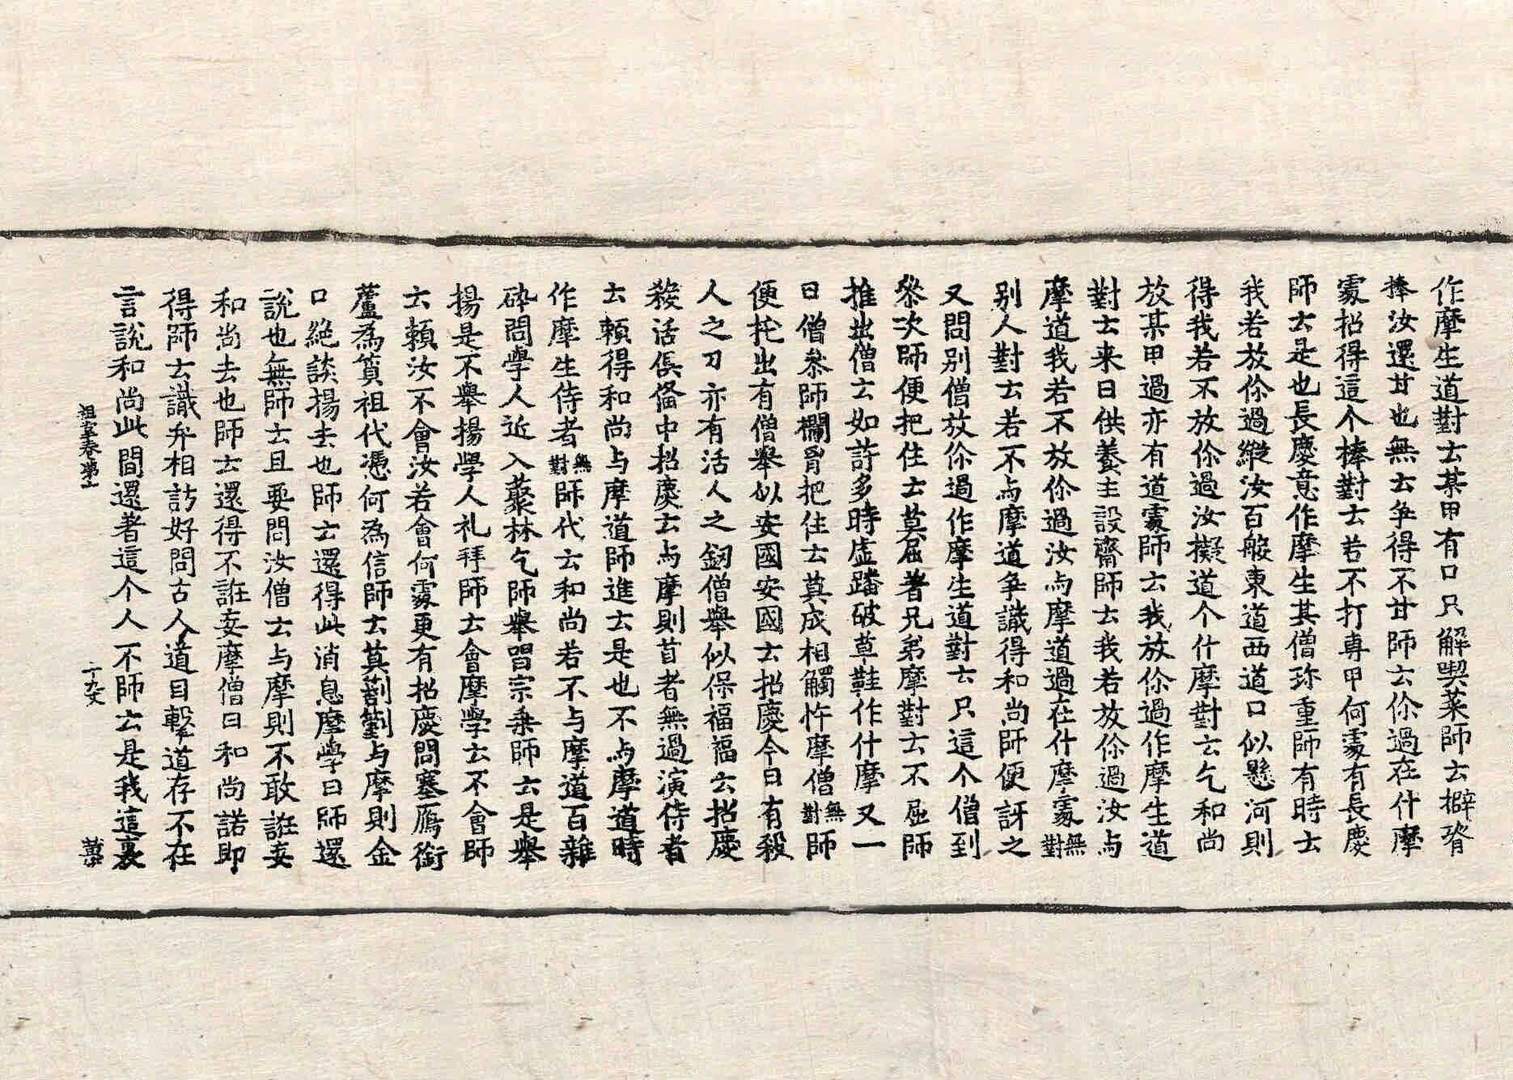 作摩生道對士某甲有口只解喫菜師士擗脊
捧汝還甘也無士爭得不甘師云你過在什摩
處招得這个棒對士若不打專甲何處有長慶
師士是也長慶意作摩生其僧珎重師有時士
我若放你過縱汝百般東道西道口似懸河則
得我若不放你過汝擬道个什摩對云乞和尚
放某甲過亦有道處師云我放你過作摩生道
對士来日供養主設齋師云我若放你過汝与
摩道我若不放你過汝与摩道過在什摩處無對
別人對士若不与摩道爭識得和尚師便訝之
又問別僧放你過作摩生道對云只這个僧到
叅次師便把住士莫屈著兄弟摩對云不屈師
推出僧士如許多時虛踏破草鞋作什摩又一
日僧叅師欄胷把住士莫成相觸忤摩僧無對師
便托出有僧舉似安國安國士招慶今日有殺
人之刀亦有活人之劒僧舉似保福福云招慶
殺活俱俻中招慶云与摩則苜者無過演侍者
士頼得和尚与摩道師進士是也不与摩道時
作摩生侍者無對師代云和尚若不与摩道百雜
碎問學人近入藂林乞師舉唱宗乗師士是舉
揚是不舉揚學人礼拜師士會摩學云不會師
士頼汝不會汝若會何處更有招慶問塞鴈銜
蘆為質祖代憑何為信師士莫劄劄与摩則金
口絶談揚去也師士還得此消息摩學曰師還
說也無師士且要問汝僧士与摩則不敢誑妄
和尚去也師士還得不誑妄摩僧曰和尚諾即
得師士識弁相訪好問古人道目擊道存不在
言說和尚此間還著這个人不師云是我這裏
祖堂卷第十三